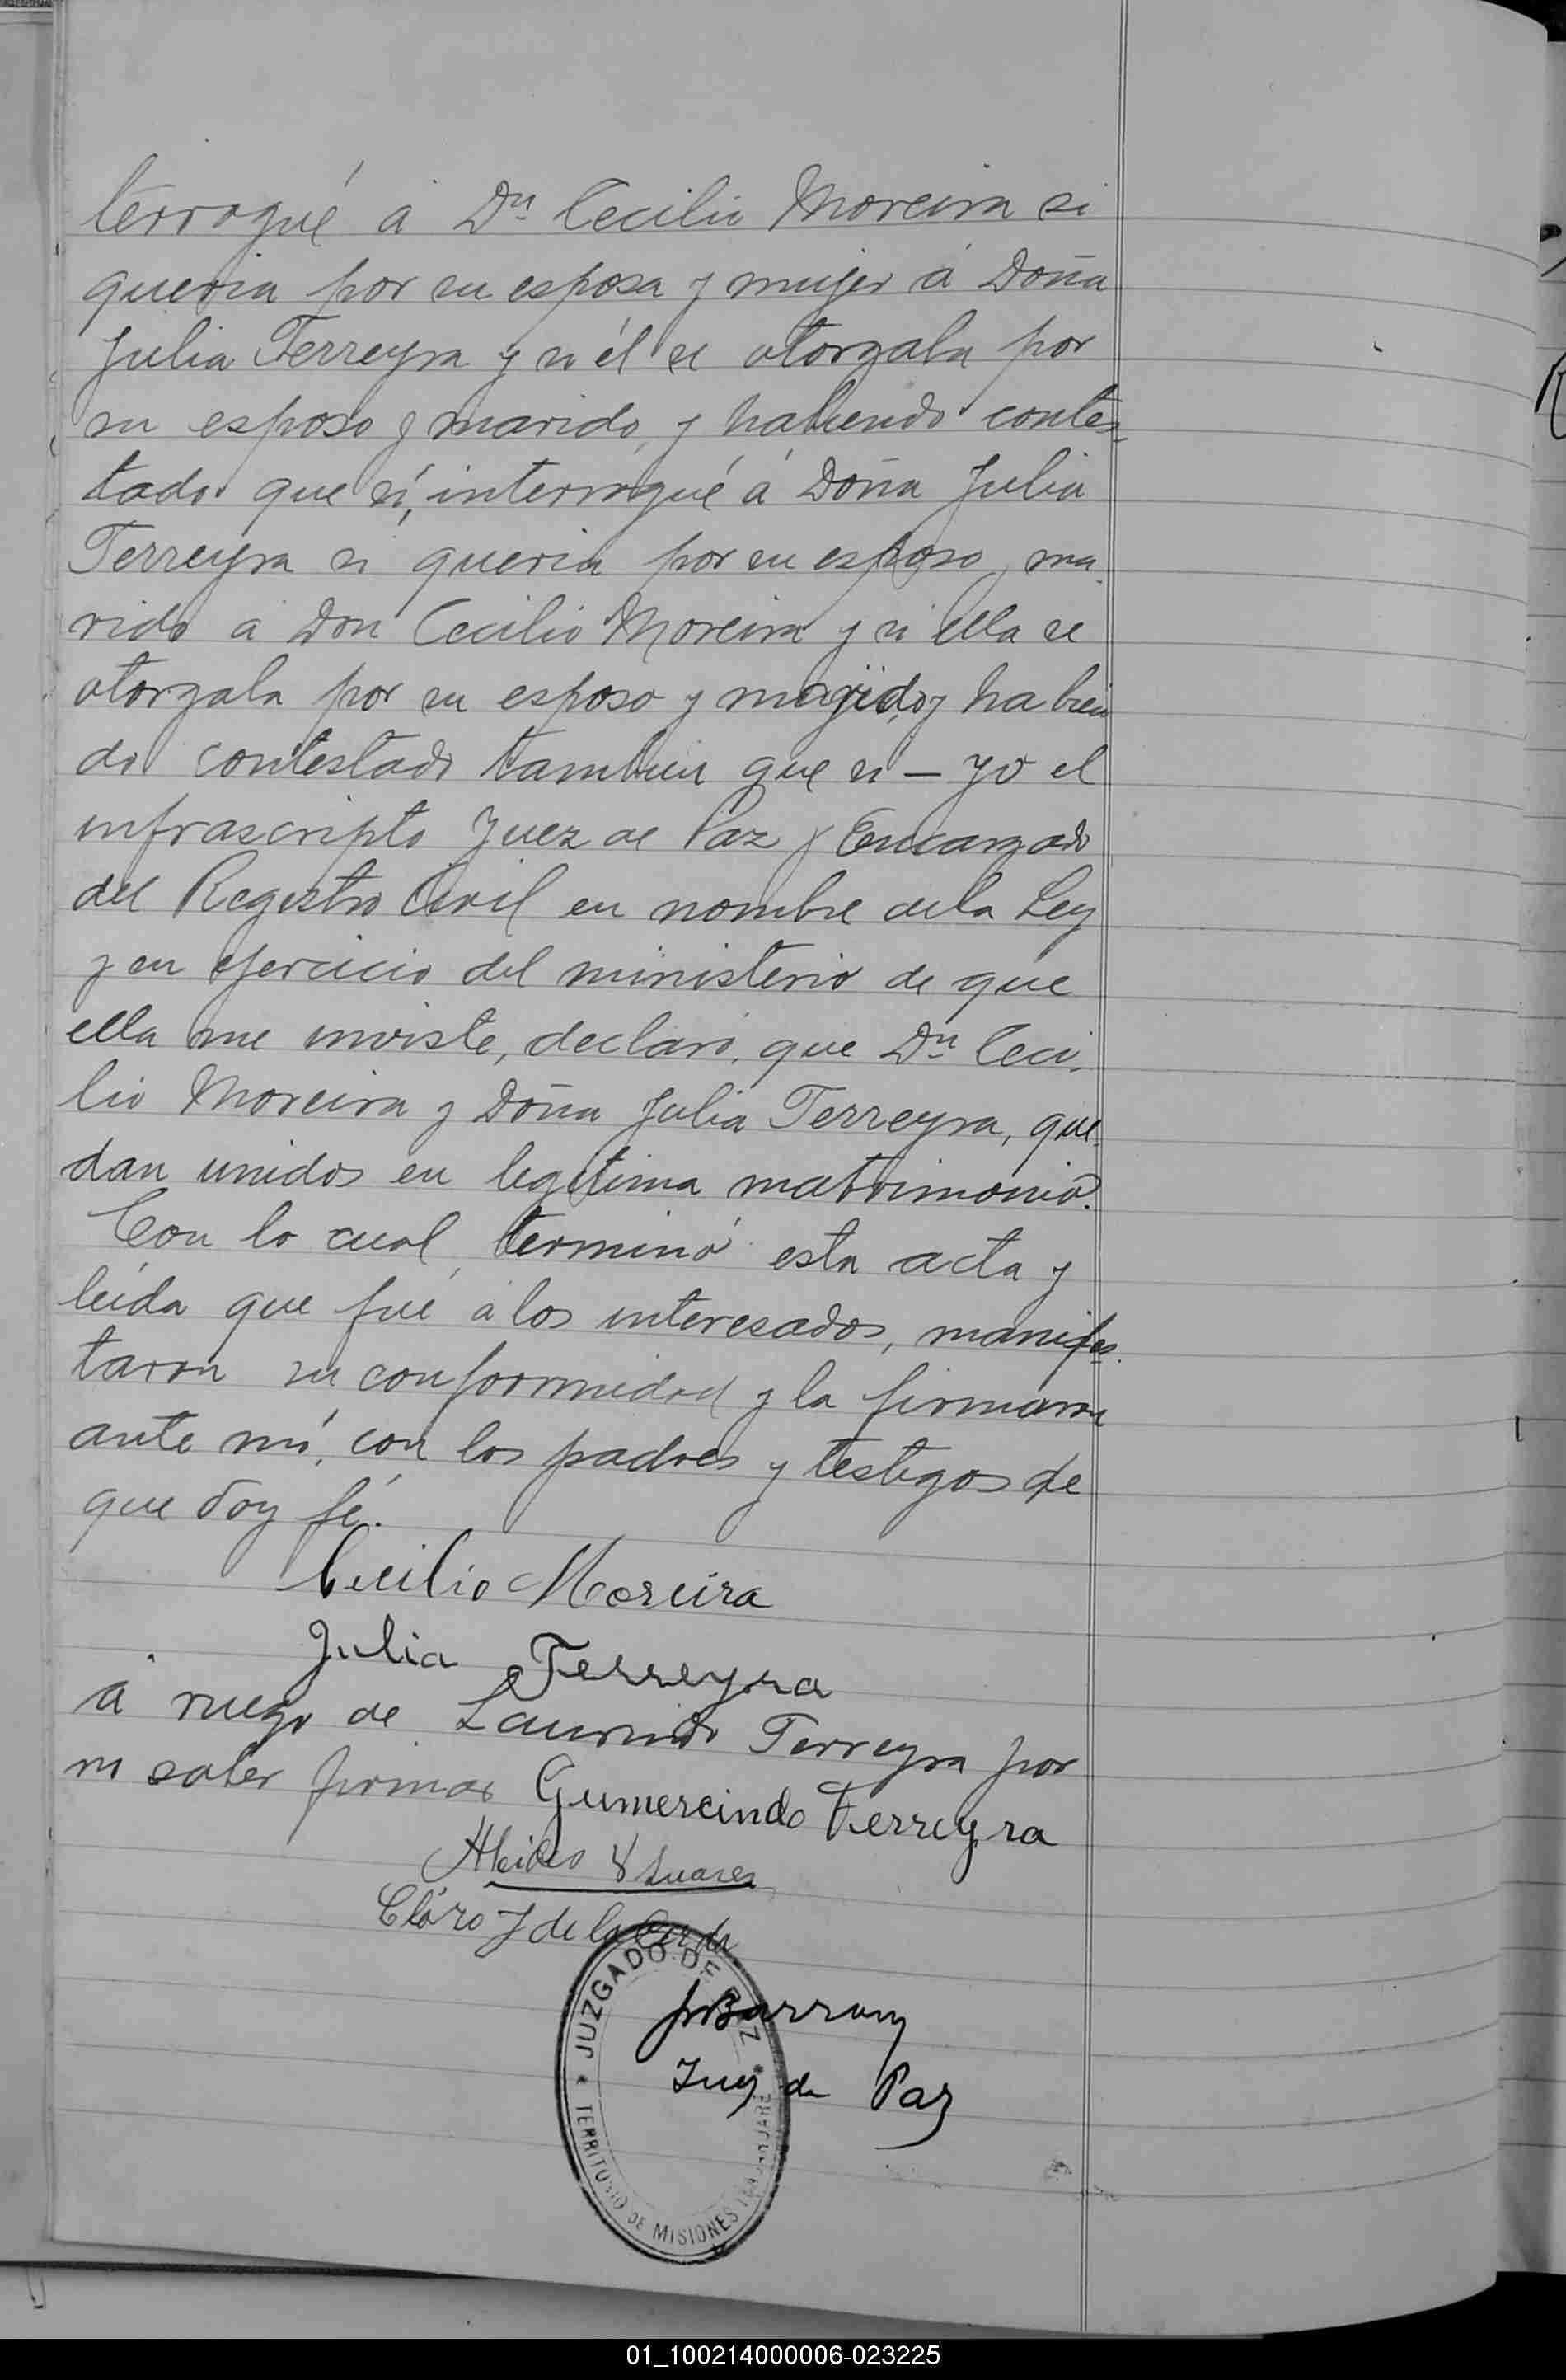 terrogué á Dn Cecilio Moreira si
queria por su esposa y mujer á Doña
Julia Ferreyra y si él se otorgaba por
su esposo y marido, y habiendo contes-
tado que sí, interrogué á Doña Julia
Ferreyra si queria por su esposo y ma-
rido á Don Cecilio Moreira y si ella se
otorgaba por su esposo y marido, y habien
do contestado tambien que si — yo el
infrascripto Juez de Paz y Encargado
del Registro Civil en nombre de la Ley
y en ejercicio del ministerio de que
ella me inviste, declaro, que Dn Ceci-
lio Moreira y Doña Julia Ferreyra, que-
dan unidos en legitima matrimonio.
Con lo cual, terminó esta acta y
leída que fué á los interesados, manifes-
taron su conformidad y la firmaron
ante mí, con los padres y testigos de
que doy fé.
Cecilio Moreira
Julia Ferreyra
á ruego de Laurindo Ferreyra por
no saber firmar Gumercindo Ferreyra
Alcides V Suarez
Claro J de la Cerda
JUZGADO DE PAZ
JBarrory
Juez de Paz
TERRITORIO DE MISIONES
01_100214000006-023225